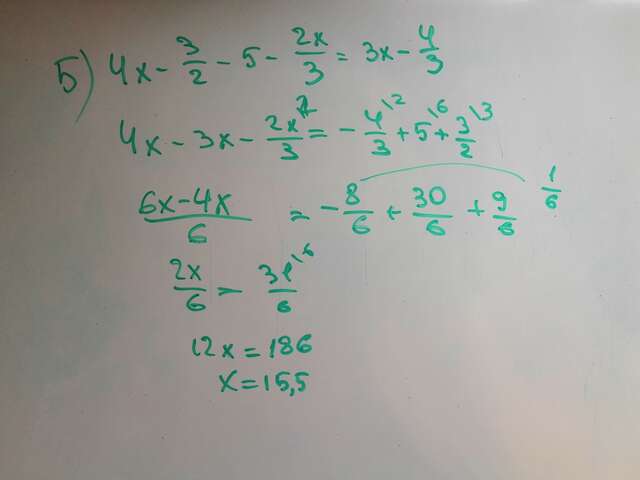 5) 4x - 3/2 - 5 - 2x/3 = 3x - 4/3
4x - 3x - 2x/3 \2 = - 4/3 \2 + 5 \6 + 3/2 \3
6x - 4x / 6 = - 8/6 + 30/6 + 9/6 1/6
2x/6 = 31/6 \6
12x = 186
x = 15,5